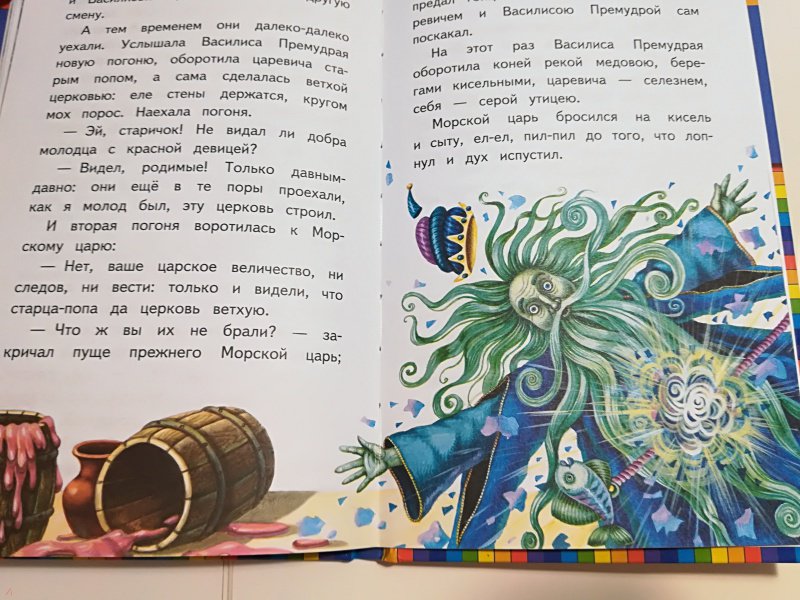 и Василисой другую
смену.
А тем временем они далеко-далеко
уехали. Услышала Василиса Премудрая
новую погоню, оборотила царевича ста-
рым попом, а сама сделалась ветхой
церковью: еле стены держатся, кругом
мох порос. Наехала погоня.
— Эй, старичок! Не видал ли добра
молодца с красной девицей?
— Видел, родимые! Только давным-
давно: они ещё в те поры проехали,
как я молод был, эту церковь строил.
И вторая погоня воротилась к Мор-
скому царю:
— Нет, ваше царское величество, ни
следов, ни вести: только и видели, что
старца-попа да церковь ветхую.
— Что ж вы их не брали? — за-
кричал пуще прежнего Морской царь;
предал
ревичем и Василисою Премудрой сам
поскакал.
На этот раз Василиса Премудрая
оборотила коней рекой медовою, бере-
гами кисельными, царевича — селезнем,
себя — серой утицею.
Морской царь бросился на кисель
и сыту, ел-ел, пил-пил до того, что лоп-
нул и дух испустил.